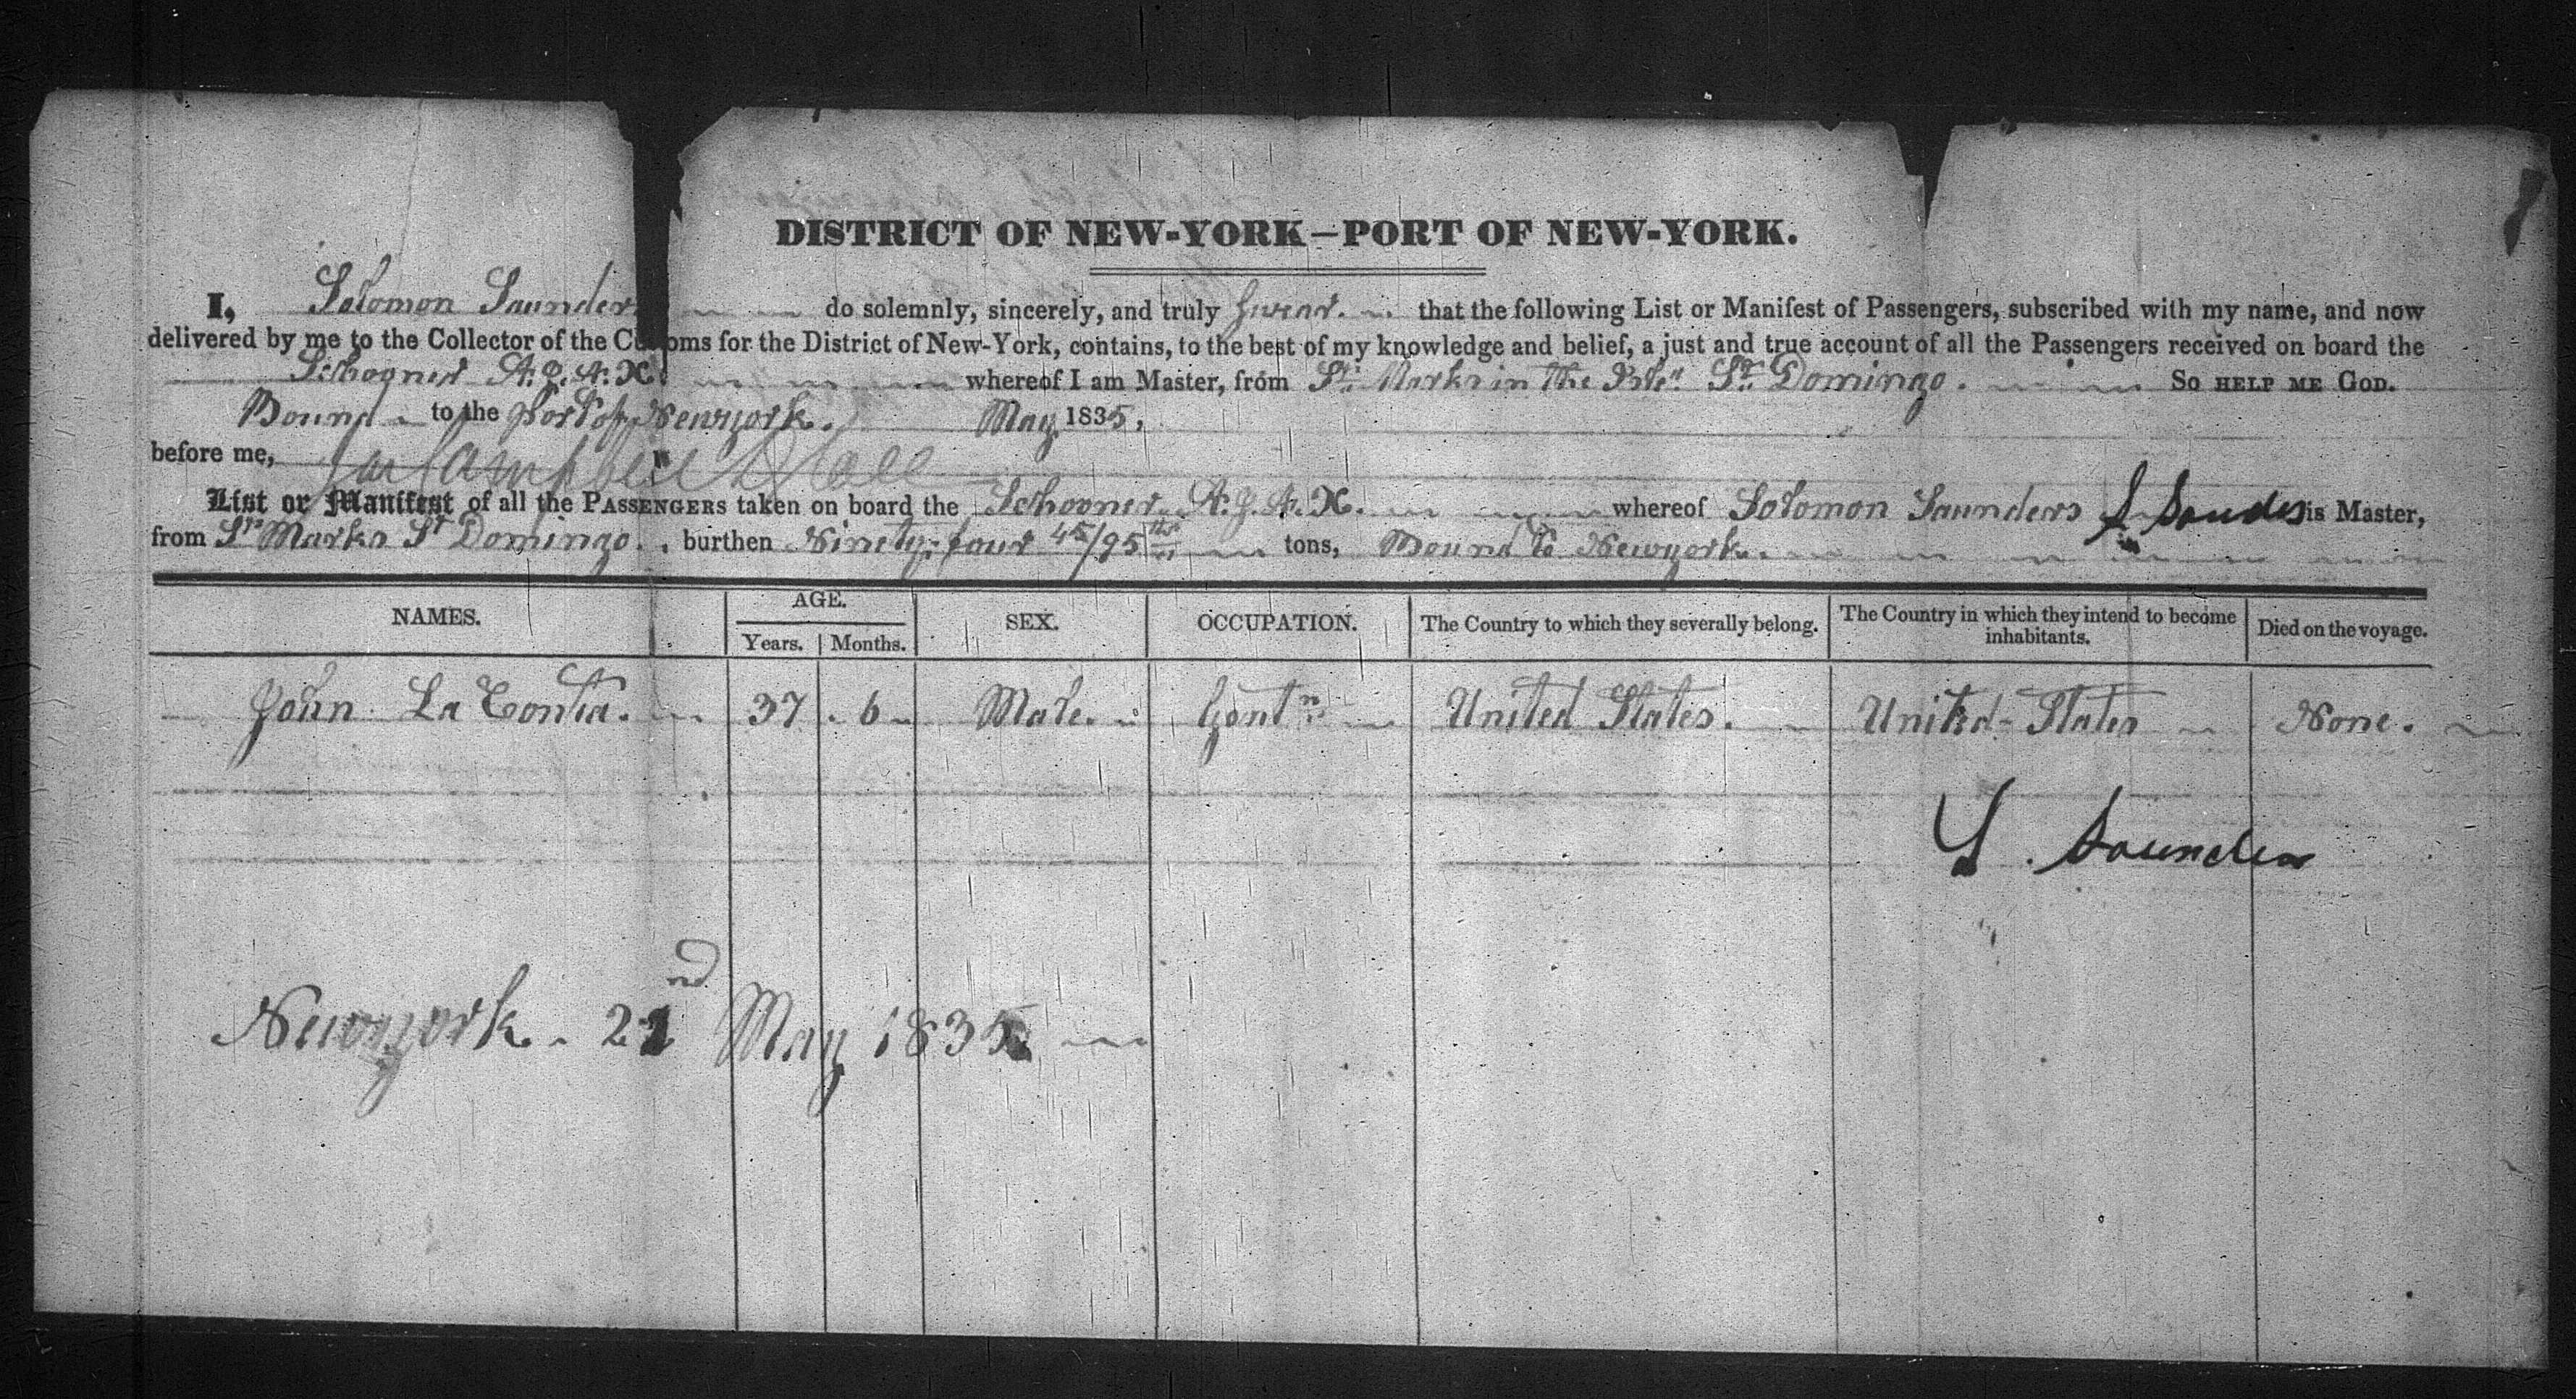 DISTRICT OF NEW-YORK—PORT OF NEW-YORK.
I, Solomon Saunders do solemnly, sincerely, and truly Swear. that the following List or Manifest of Passengers, subscribed with my name, and now
delivered by me to the Collector of the Customs for the District of New-York, contains, to the best of my knowledge and belief, a just and true account of all the Passengers received on board the
Schooner whereof I am Master, from St. Marks in the St. Domingo. So HELP ME GOD.
Bound to the Port of Newyork. May 1835,
before me,
List or Manifest of all the PASSENGERS taken on board the Schooner whereof Solomon Saunders S Saunders is Master,
from St. Marks St Domingo. burthen Ninety-four 45/95ths tons, Bound to Newyork.
NAMES. AGE. SEX. OCCUPATION. The Country to which they severally belong. The Country in which they intend to become inhabitants. Died on the voyage.
Years. Months.
John La 37 6 Male. Gentn United States. United-States None.
S. Saunders
Newyork. 22nd May 1835